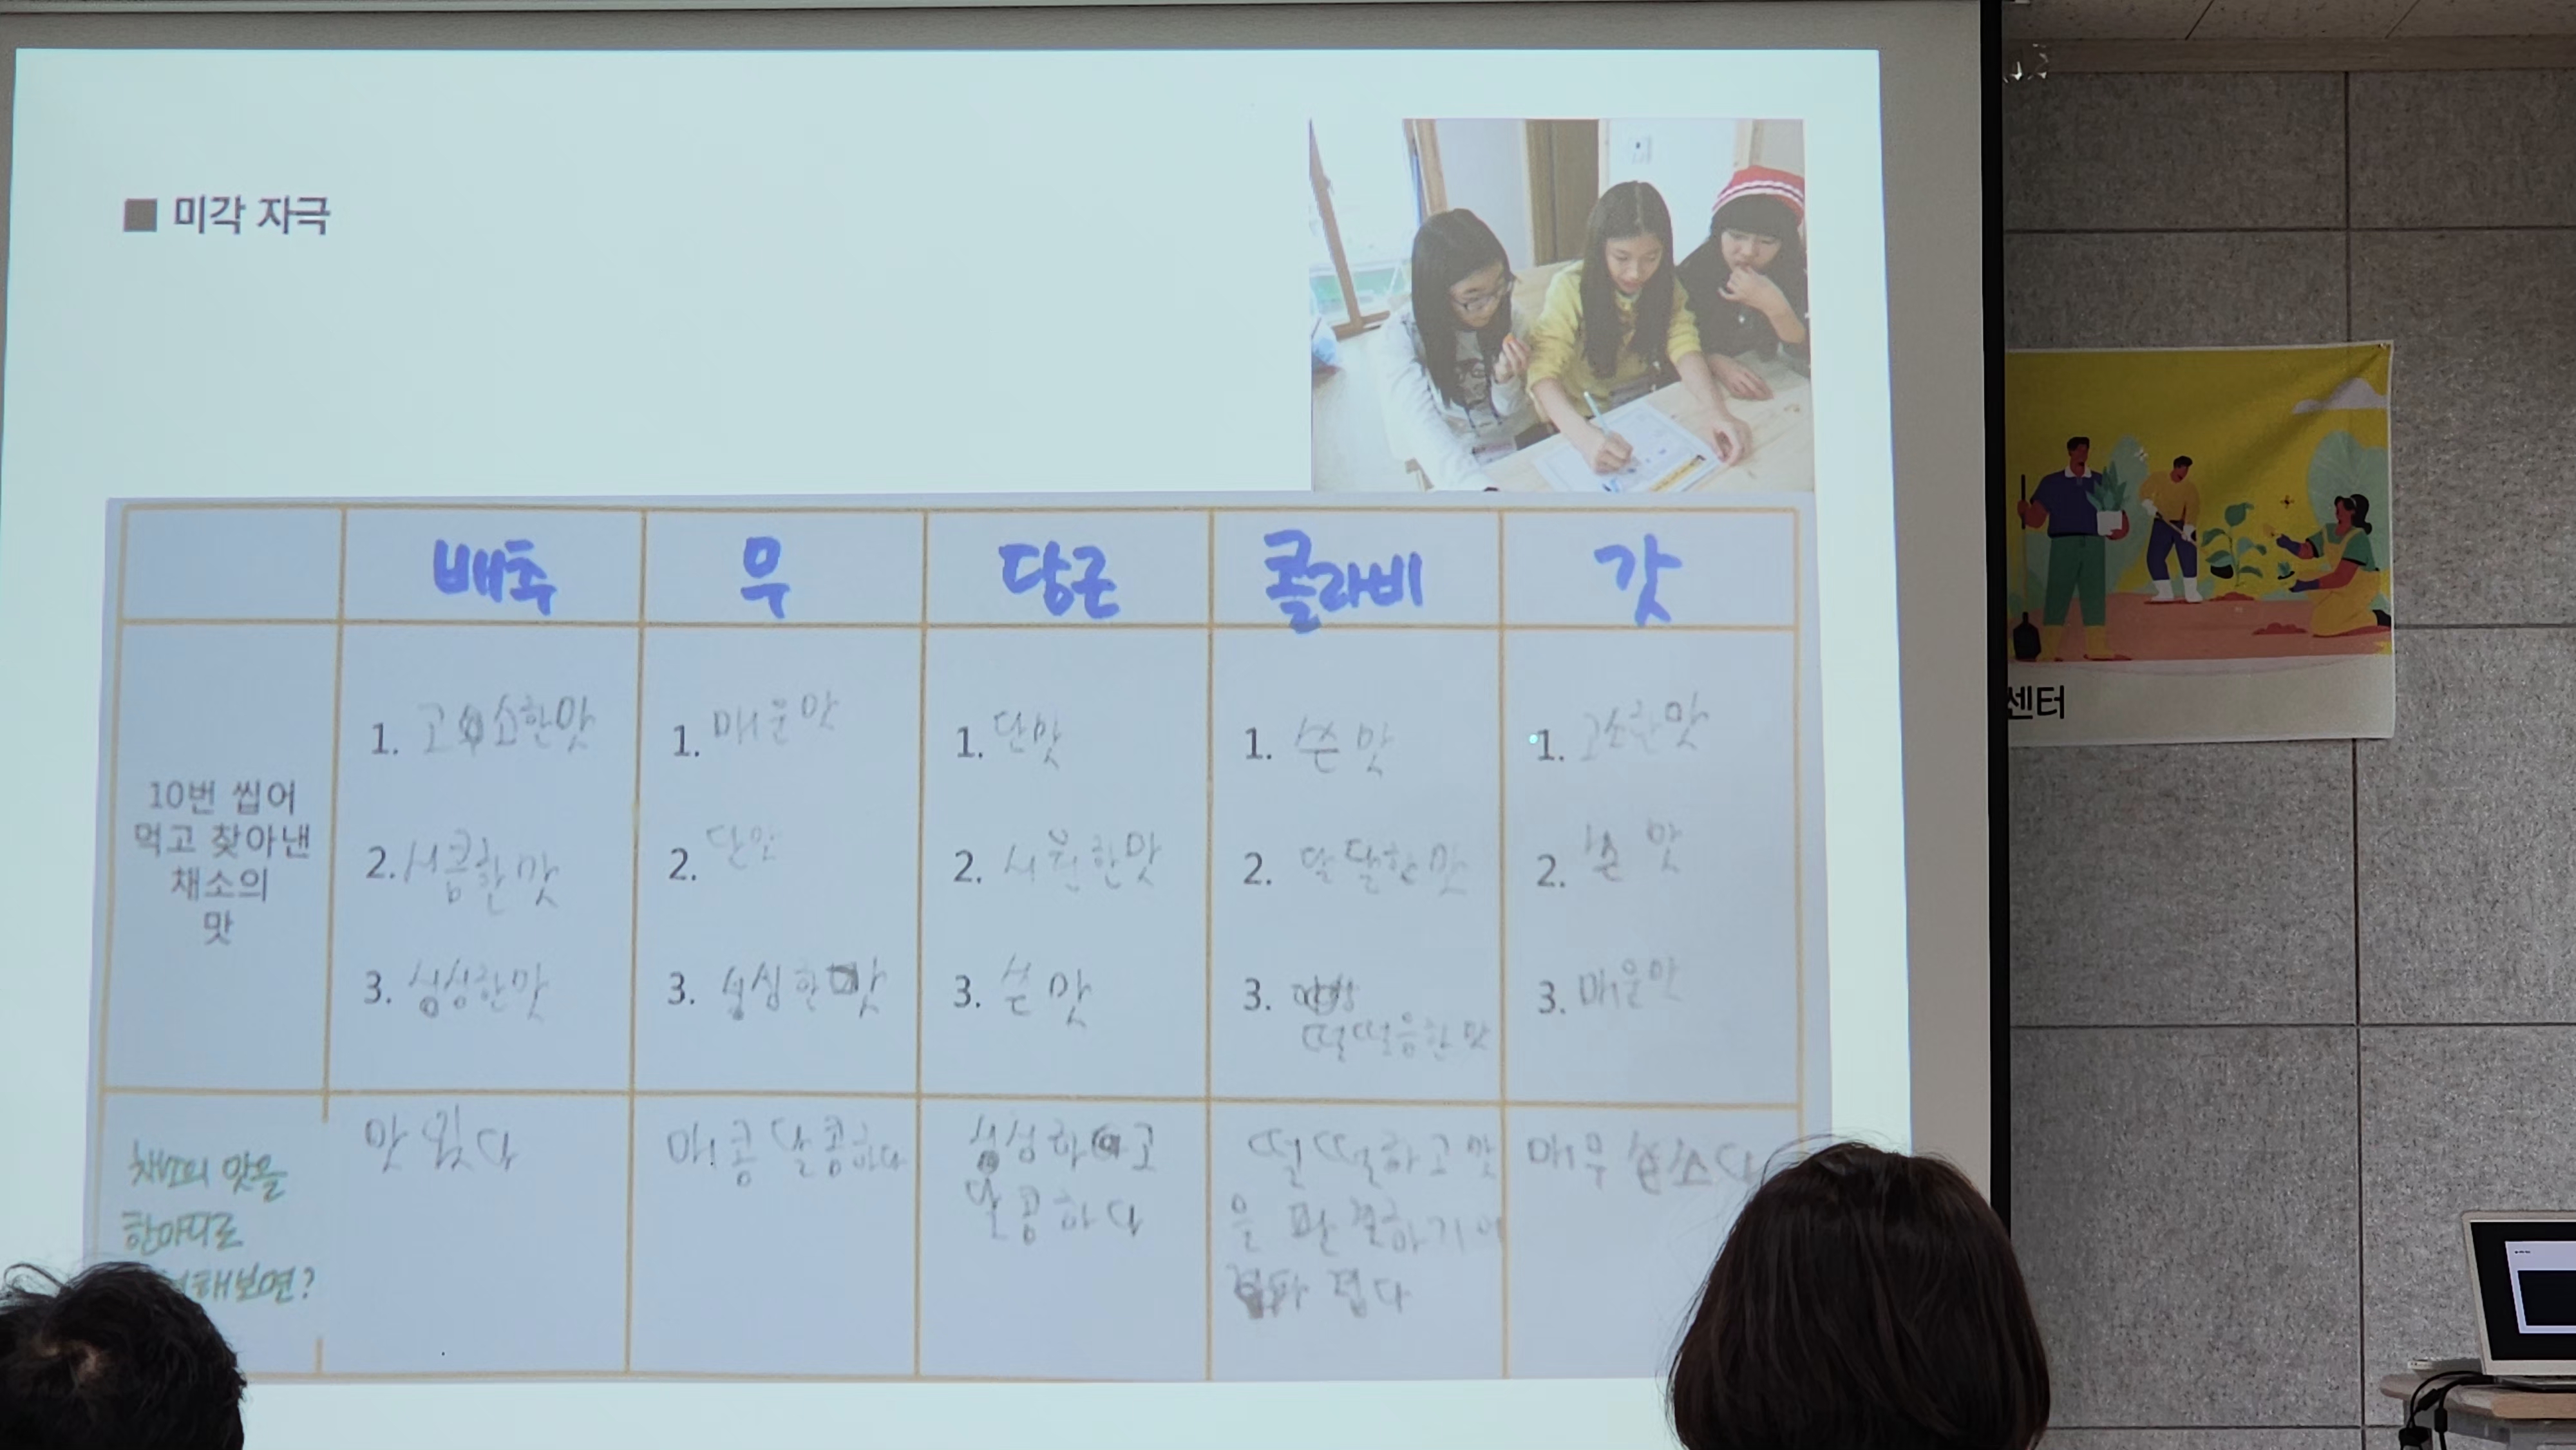 ■ 미각 자극
배추 무 당근 콜라비 갓
10번 씹어
먹고 찾아낸
채소의
맛
1. 고소한맛
2. 시콤한 맛
3. 싱싱한맛
1. 매운맛
2. 단맛
3. 싱싱한 맛
1. 단맛
2. 시원한맛
3. 쓴 맛
1. 쓴 맛
2. 달달한 맛
3.
떨떠름한 맛
1. 고소한맛
2. 쓴 맛
3. 매운맛
채소의 맛을
한마디로
해보면?
맛있다
매콤달콤하다
싱싱하고
달콤하다
떨떨하고 맛
을 판결하기
매우
센터